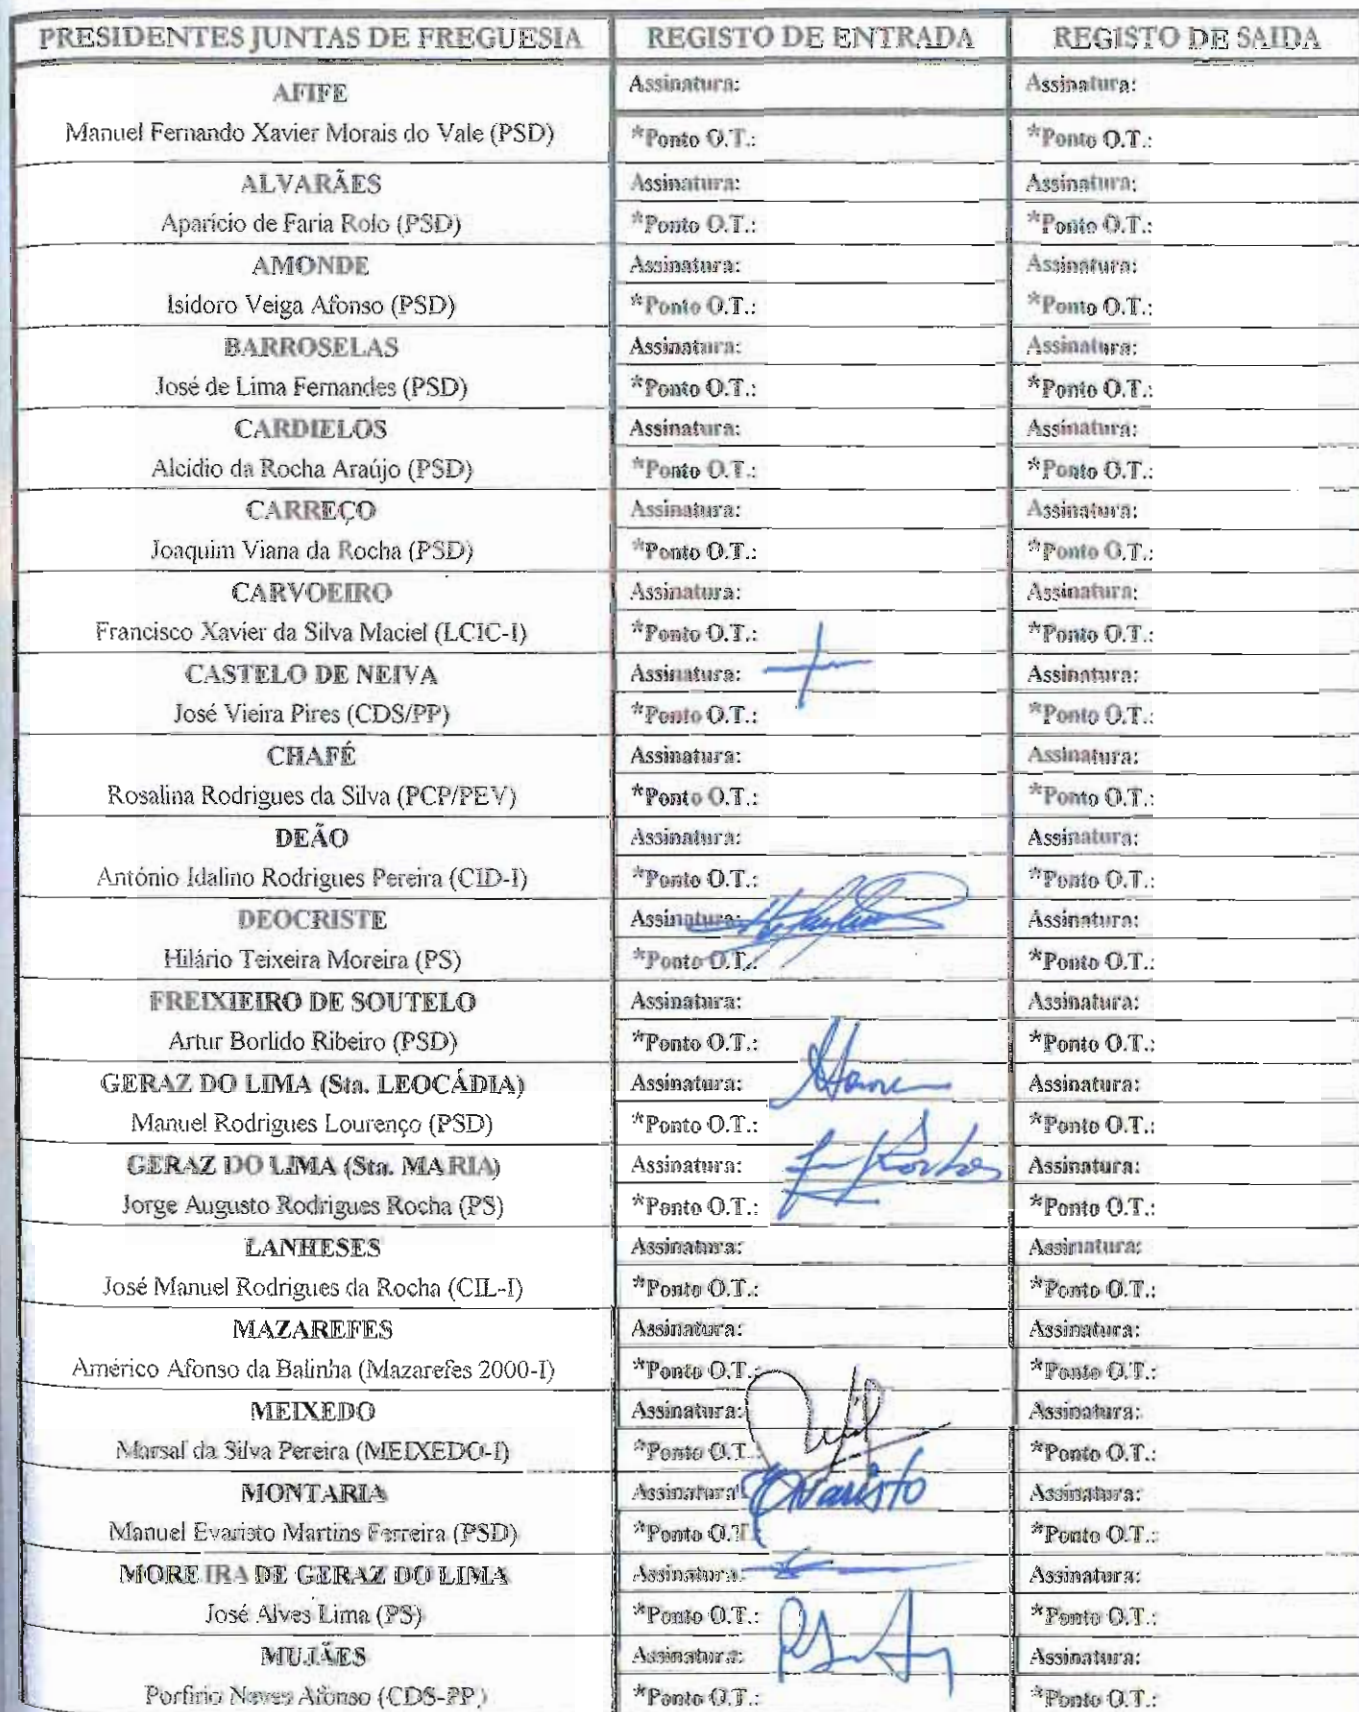 PRESIDENTES JUNTAS DE FREGUESIA REGISTO DE ENTRADA REGISTO DE SAIDA
AFIFE Assinatura: Assinatura:
Manuel Fernando Xavier Morais do Vale (PSD) *Ponto O.T.: *Ponto O.T.:
ALVARÃES Assinatura: Assinatura:
Aparício de Faria Rolo (PSD) *Ponto O.T.: *Ponto O.T.:
AMONDE Assinatura: Assinatura:
Isidoro Veiga Afonso (PSD) *Ponto O.T.: *Ponto O.T.:
BARROSELAS Assinatura: Assinatura:
José de Lima Fernandes (PSD) *Ponto O.T.: *Ponto O.T.:
CARDIELOS Assinatura: Assinatura:
Alcidio da Rocha Araújo (PSD) *Ponto O.T.: *Ponto O.T.:
CARREÇO Assinatura: Assinatura:
Joaquim Viana da Rocha (PSD) *Ponto O.T.: *Ponto O.T.:
CARVOEIRO Assinatura: Assinatura:
Francisco Xavier da Silva Maciel (LCIC-I) *Ponto O.T.: *Ponto O.T.:
CASTELO DE NEIVA Assinatura: Assinatura:
José Vieira Pires (CDS/PP) *Ponto O.T.: *Ponto O.T.:
CHAFÉ Assinatura: Assinatura:
Rosalina Rodrigues da Silva (PCP/PEV) *Ponto O.T.: *Ponto O.T.:
DEÃO Assinatura: Assinatura:
António Idalino Rodrigues Pereira (CID-I) *Ponto O.T.: *Ponto O.T.:
DEOCRISTE Assinatura: Assinatura:
Hilário Teixeira Moreira (PS) *Ponto O.T.: *Ponto O.T.:
FREIXIEIRO DE SOUTELO Assinatura: Assinatura:
Artur Borlido Ribeiro (PSD) *Ponto O.T.: *Ponto O.T.:
GERAZ DO LIMA (Sta. LEOCÁDIA) Assinatura: Assinatura:
Manuel Rodrigues Lourenço (PSD) *Ponto O.T.: *Ponto O.T.:
GERAZ DO LIMA (Sta. MARIA) Assinatura: Assinatura:
Jorge Augusto Rodrigues Rocha (PS) *Ponto O.T.: *Ponto O.T.:
LANHESES Assinatura: Assinatura:
José Manuel Rodrigues da Rocha (CIL-I) *Ponto O.T.: *Ponto O.T.:
MAZAREFES Assinatura: Assinatura:
Américo Afonso da Balinha (Mazarefes 2000-I) *Ponto O.T.: *Ponto O.T.:
MEIXEDO Assinatura: Assinatura:
Marsal da Silva Pereira (MEIXEDO-I) *Ponto O.T.: *Ponto O.T.:
MONTARIA Assinatura: Evaristo Assinatura:
Manuel Evaristo Martins Ferreira (PSD) *Ponto O.T.: *Ponto O.T.:
MOREIRA DE GERAZ DO LIMA Assinatura: Assinatura:
José Alves Lima (PS) *Ponto O.T.: *Ponto O.T.:
MUJÃES Assinatura: Assinatura:
Porfirio Neves Afonso (CDS-PP) *Ponto O.T.: *Ponto O.T.: